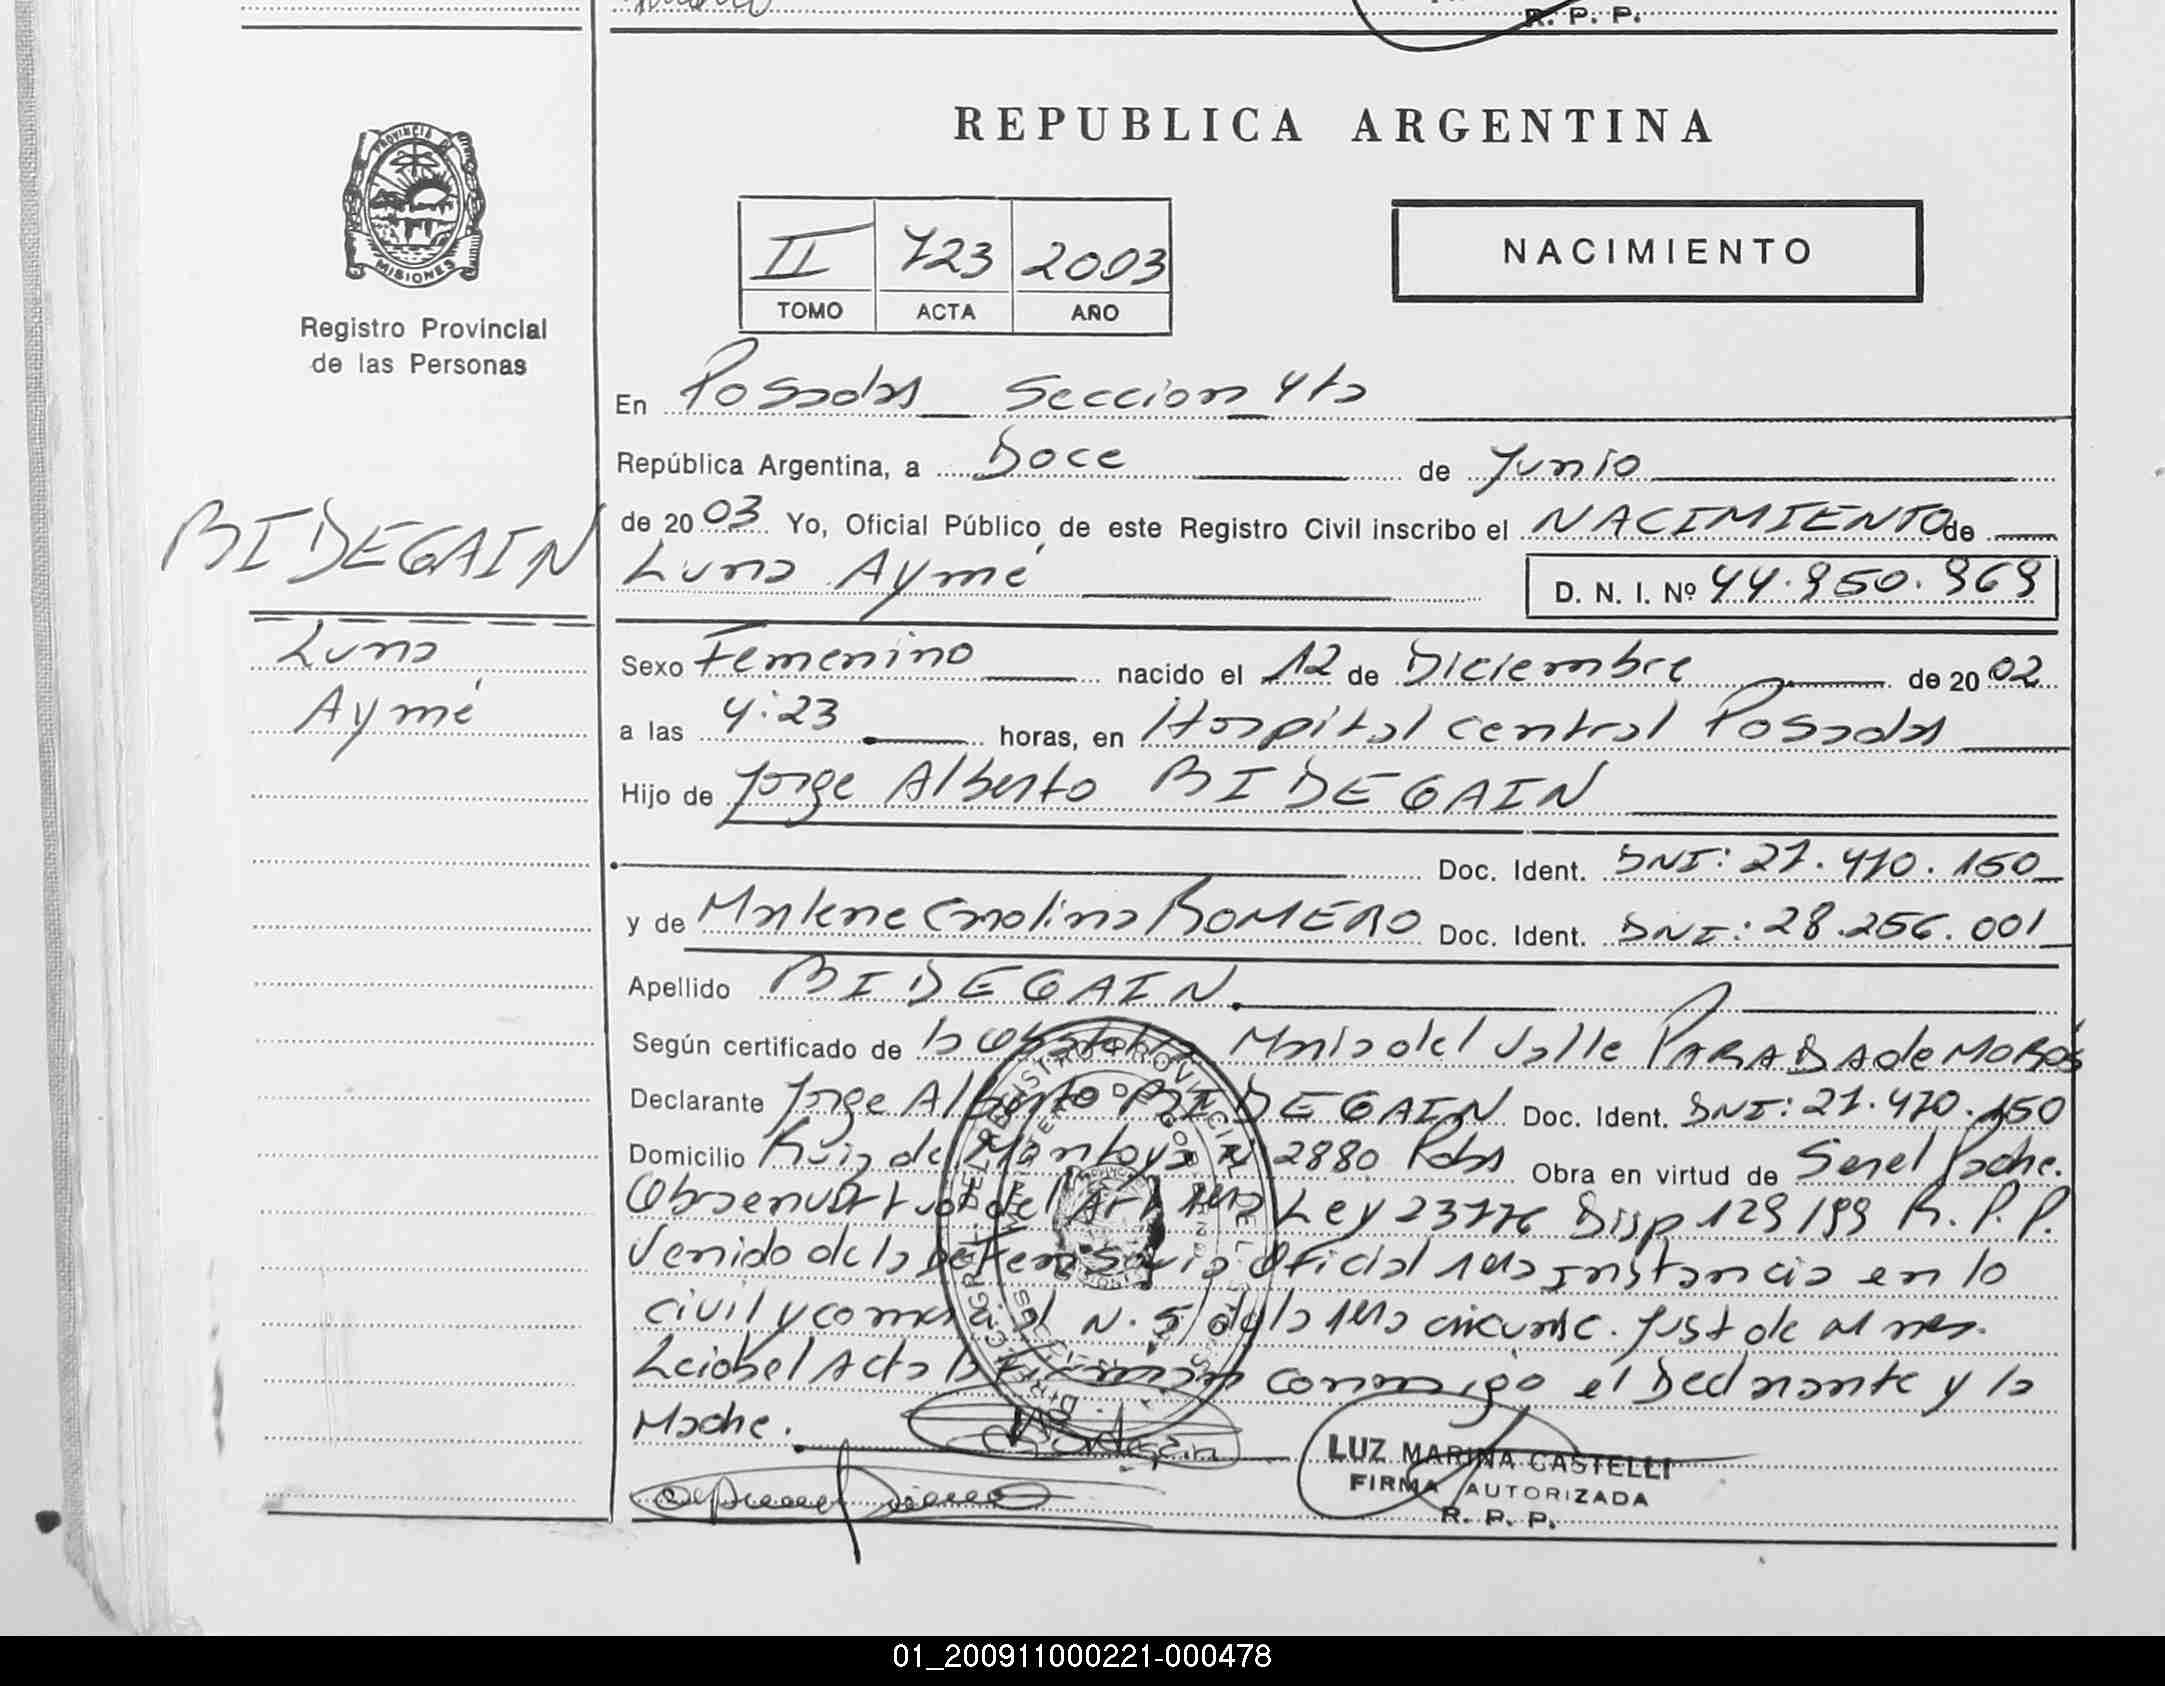 R. P. P.
REPUBLICA ARGENTINA
PROVINCIA DE
MISIONES
Registro Provincial
de las Personas
II 723 2003
TOMO ACTA AÑO
NACIMIENTO
En Posadas Seccion 4ta
República Argentina, a Doce de Junio
de 2003 Yo, Oficial Público de este Registro Civil inscribo el NACIMIENTO de
BIDEGAIN
Luna Aymé
D. N. I. Nº 44.950.969
Luna
Aymé
Sexo Femenino nacido el 12 de Diciembre de 2002
a las 4:23 horas, en Hospital Central Posadas
Hijo de Jorge Alberto BIDEGAIN
Doc. Ident. DNI: 21.470.150
y de Marlene Carolina ROMERO Doc. Ident. DNI: 28.256.001
Apellido BIDEGAIN
Según certificado de la Obstetra Maria del Valle PARABA de MORAS
Declarante Jorge Alberto BIDEGAIN Doc. Ident. DNI: 21.470.150
Domicilio Ruiz de Montoya N 2880 Pdas Obra en virtud de Ser el Padre.
Obs en virtud del Art 1ero Ley 23776 Disp 129/99 R.P.P.
Venido de la Defensoria Oficial 1era Instancia en lo
civil y comercial N. 5 de la 1era circunsc. Just de Mnes.
Leida el Acta la Firman conmigo el Declarante y la
Madre.
LUZ MARINA CASTELLI
FIRMA AUTORIZADA
R. P. P.
01_200911000221-000478